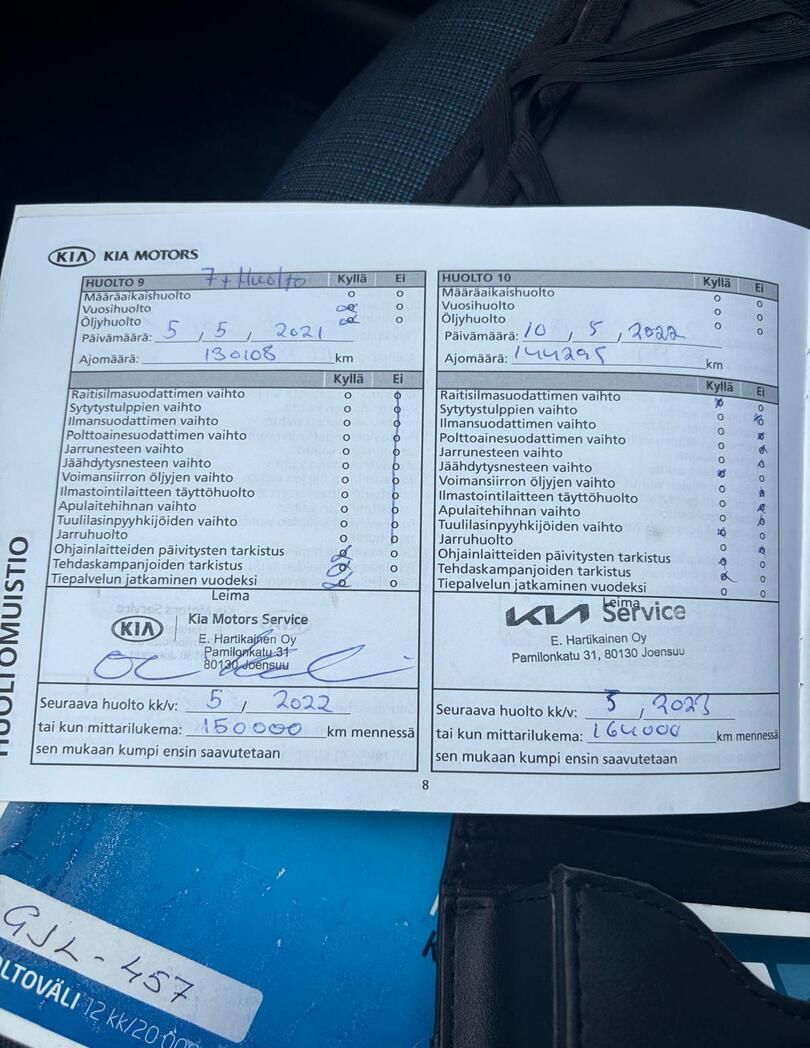 KIA KIA MOTORS
HUOLTO 9 7+Huolto Kyllä Ei
Määräaikaishuolto
Vuosihuolto
Öljyhuolto
Päivämäärä: 5 / 5 / 2021
Ajomäärä: 130108 km
Kyllä Ei
Raitisilmasuodattimen vaihto
Sytytystulppien vaihto
Ilmansuodattimen vaihto
Polttoainesuodattimen vaihto
Jarrunesteen vaihto
Jäähdytysnesteen vaihto
Voimansiirron öljyjen vaihto
Ilmastointilaitteen täyttöhuolto
Apulaitehihnan vaihto
Tuulilasinpyyhkijöiden vaihto
Jarruhuolto
Ohjainlaitteiden päivitysten tarkistus
Tehdaskampanjoiden tarkistus
Tiepalvelun jatkaminen vuodeksi
Leima
KIA Kia Motors Service
E. Hartikainen Oy
Pamilonkatu 31
80130 Joensuu
Seuraava huolto kk/v: 5 / 2022
tai kun mittarilukema: 150000 km mennessä
sen mukaan kumpi ensin saavutetaan
HUOLTO 10 Kyllä Ei
Määräaikaishuolto
Vuosihuolto
Öljyhuolto
Päivämäärä: 10 / 5 / 2022
Ajomäärä: 144295 km
Kyllä Ei
Raitisilmasuodattimen vaihto
Sytytystulppien vaihto
Ilmansuodattimen vaihto
Polttoainesuodattimen vaihto
Jarrunesteen vaihto
Jäähdytysnesteen vaihto
Voimansiirron öljyjen vaihto
Ilmastointilaitteen täyttöhuolto
Apulaitehihnan vaihto
Tuulilasinpyyhkijöiden vaihto
Jarruhuolto
Ohjainlaitteiden päivitysten tarkistus
Tehdaskampanjoiden tarkistus
Tiepalvelun jatkaminen vuodeksi
Leima
KIA Service
E. Hartikainen Oy
Pamilonkatu 31, 80130 Joensuu
Seuraava huolto kk/v: 5 / 2023
tai kun mittarilukema: 164000 km mennessä
sen mukaan kumpi ensin saavutetaan
8
HUOLTOMUISTIO
GJL-457
LTOVÄLI 12 kk/20 000